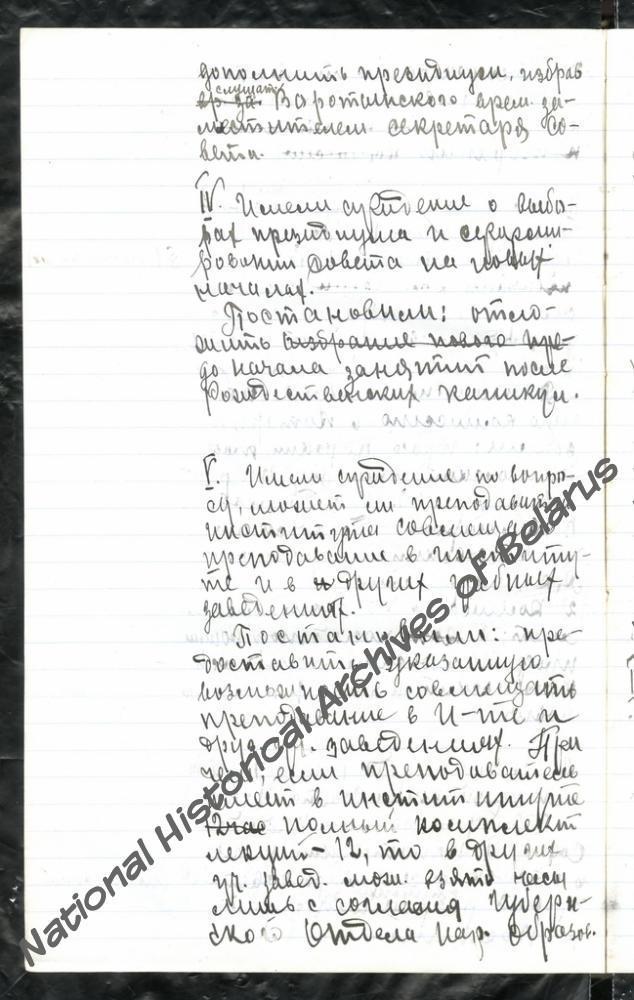 дополнить президиум, избрав
слушат.
вр. за. Воротынского врем. за-
местителем секретаря Со-
вета.
IV. Имели суждение о выбо-
рах президиума и
Совета на новых
началах.
Постановили: отло-
жить избрание нового пре-
до начала занятий после
Рождественских каникул.
V. Имели суждение по вопро-
су, может ли преподаватель
института совмещать
преподавание в институ-
те и в других учебных
заведениях.
Постановили: пре-
доставить указанную
возможность совмещать
преподавание в И-те и
друг. уч. заведениях. При
чем, если преподаватель
имеет в институте
12 час полный комплект
лекций - 12, то в других
уч. завед. мож. взять часы
лишь с согласия Губерн-
ского Отдела Нар. Образов.
National Historical Archives of Belarus